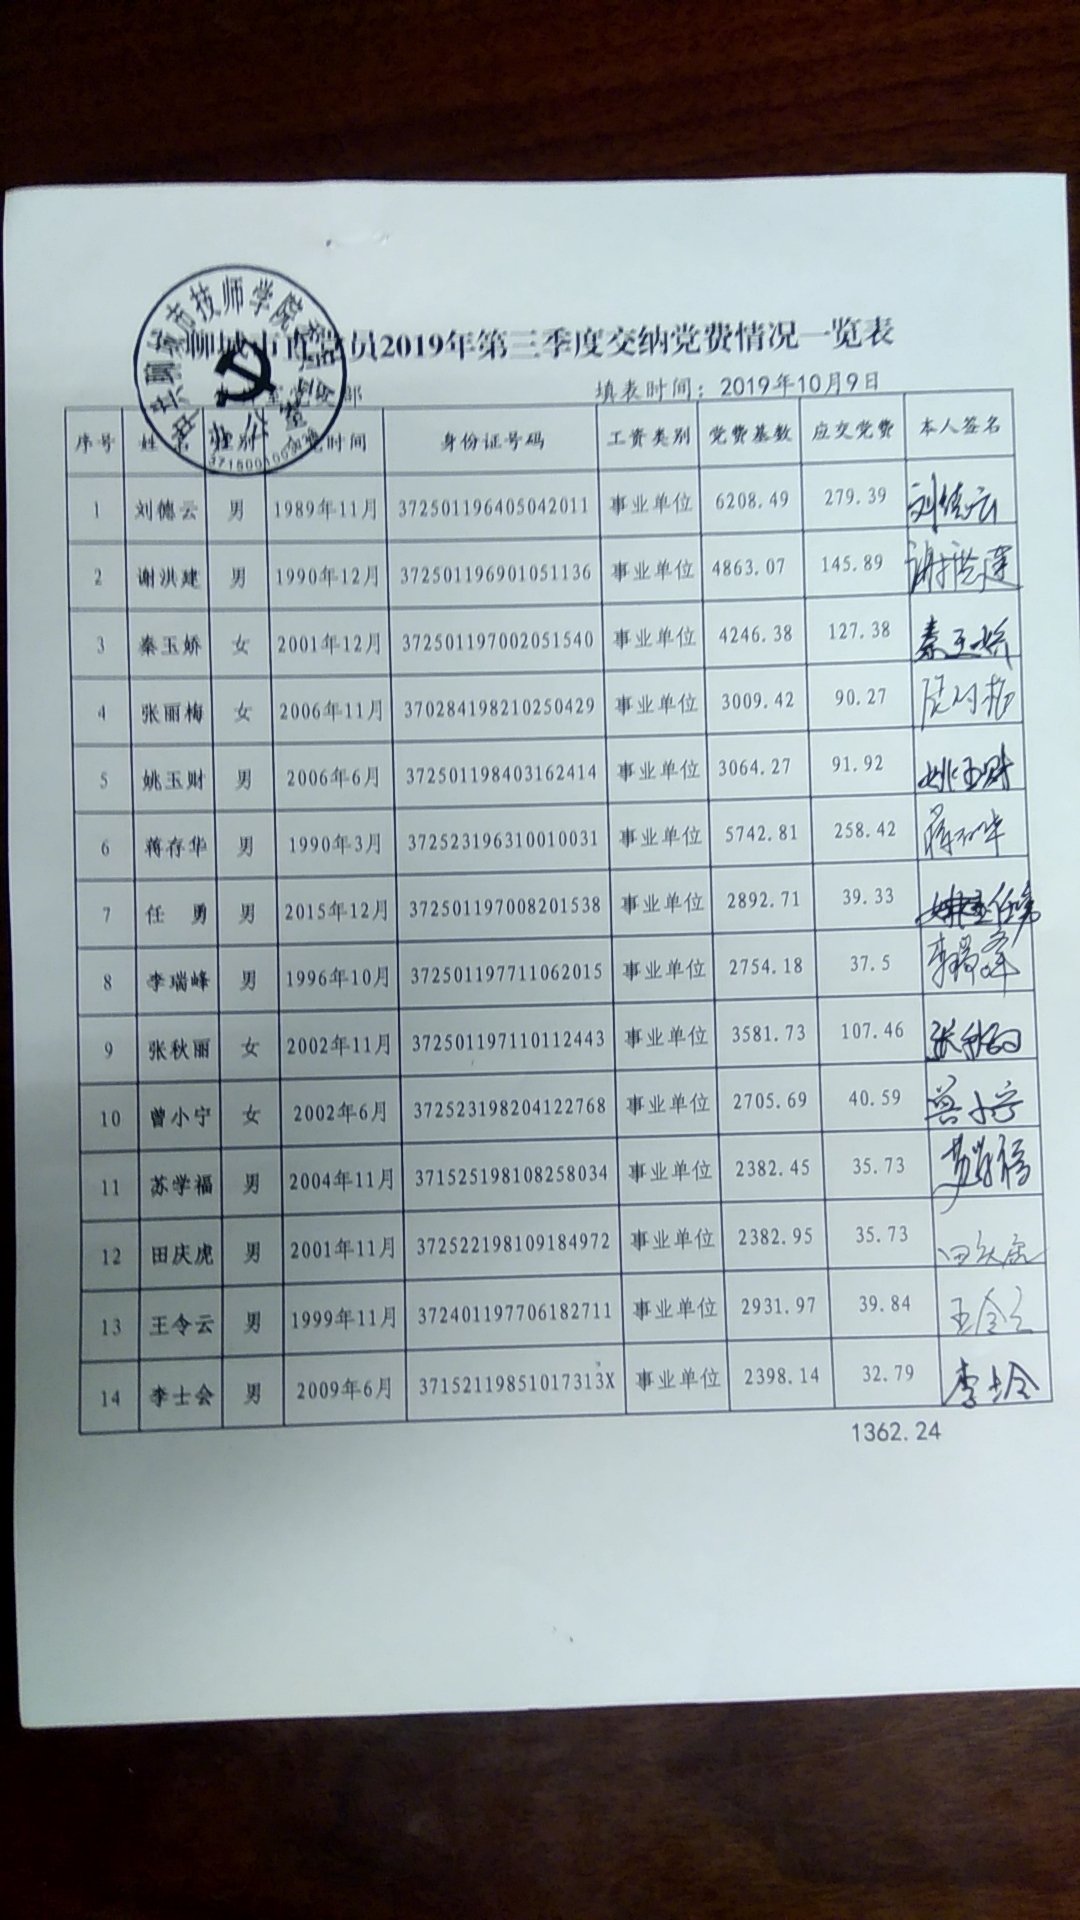 聊城市直党员2019年第三季度交纳党费情况一览表
填表时间：2019年10月9日
序号 姓名 性别 时间 身份证号码 工资类别 党费基数 应交党费 本人签名
1 刘德云 男 1989年11月 372501196405042011 事业单位 6208.49 279.39 刘德云
2 谢洪建 男 1990年12月 372501196901051136 事业单位 4863.07 145.89 谢洪建
3 秦玉娇 女 2001年12月 372501197002051540 事业单位 4246.38 127.38 秦玉娇
4 张丽梅 女 2006年11月 370284198210250429 事业单位 3009.42 90.27 张丽梅
5 姚玉财 男 2006年6月 372501198403162414 事业单位 3064.27 91.92 姚玉财
6 蒋存华 男 1990年3月 372523196310010031 事业单位 5742.81 258.42 蒋存华
7 任 勇 男 2015年12月 372501197008201538 事业单位 2892.71 39.33 任勇
8 李瑞峰 男 1996年10月 372501197711062015 事业单位 2754.18 37.5 李瑞峰
9 张秋丽 女 2002年11月 372501197110112443 事业单位 3581.73 107.46 张秋丽
10 曾小宁 女 2002年6月 372523198204122768 事业单位 2705.69 40.59 曾小宁
11 苏学福 男 2004年11月 371525198108258034 事业单位 2382.45 35.73 苏学福
12 田庆虎 男 2001年11月 372522198109184972 事业单位 2382.95 35.73 田庆虎
13 王令云 男 1999年11月 372401197706182711 事业单位 2931.97 39.84 王令云
14 李士会 男 2009年6月 37152119851017313X 事业单位 2398.14 32.79 李士会
1362.24